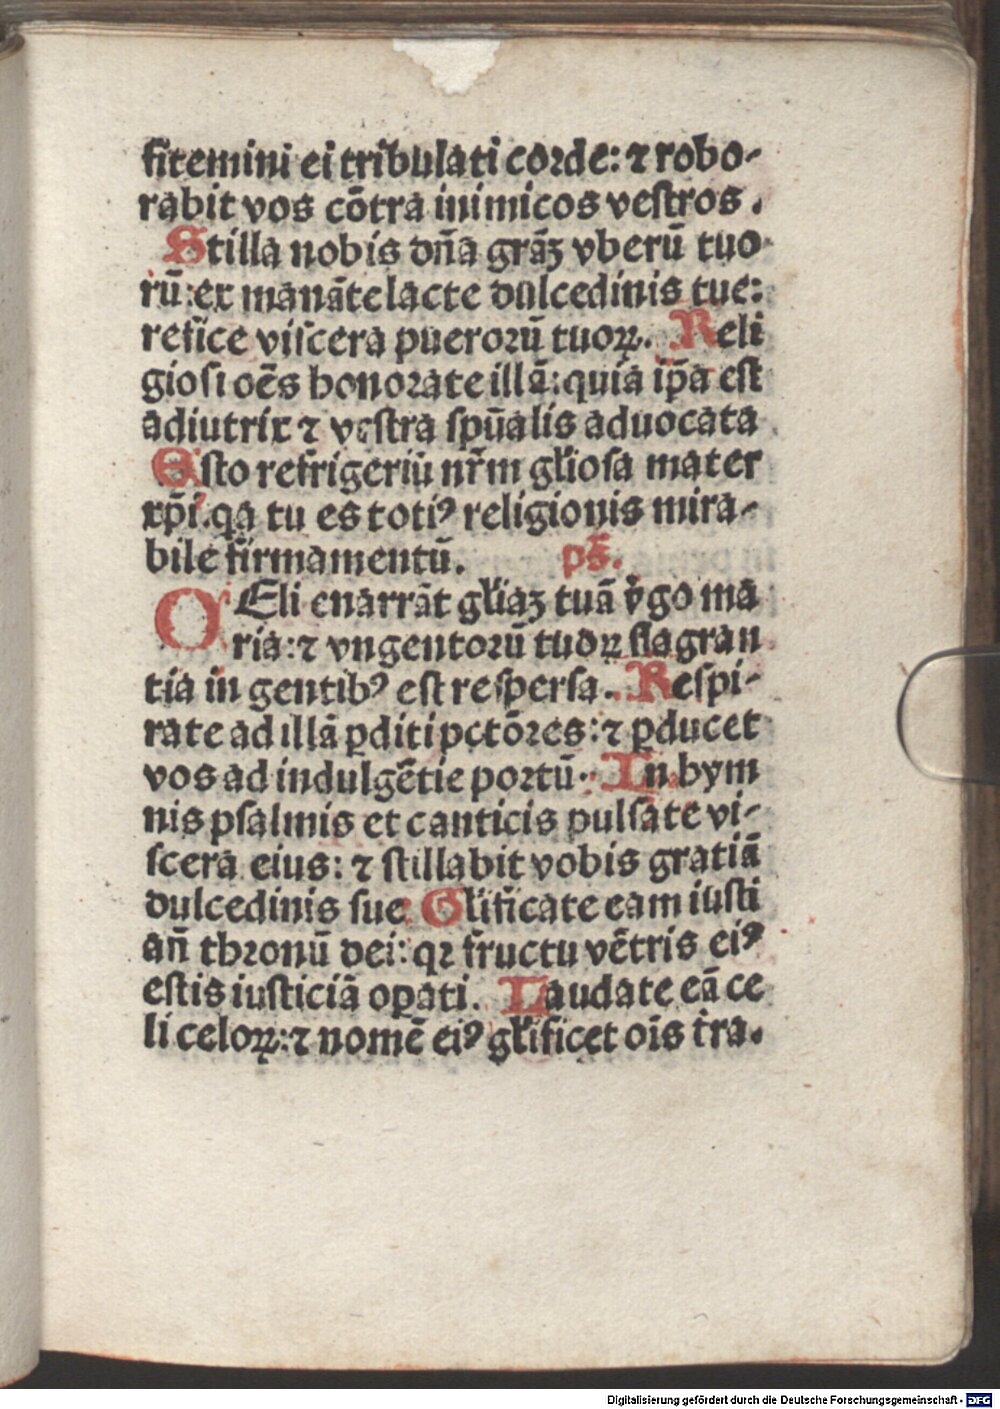 fitemini ei tribulati corde: ⁊ robo-
rabit vos cõtra inimicos vestros.
Stilla nobis dña grãʒ vberũ tuo
rũ: ex manãte lacte dulcedinis tue:
refice viscera puerorũ tuoꝝ. Reli
giosi oẽs honorate illã: quia ip̃a est
adiutrix ⁊ vestra sp̃ualis aduocata
Esto refrigeriũ nr̃m gl̃iosa mater
xp̃i. qa tu es totiꝰ religionis mira-
bile firmamentũ. ps̃.
OEli enarrãt gl̃iaʒ tuã v̓go ma
ria: ⁊ vngentorũ tuoꝝ flagran
tia in gentibꝰ est respersa. Respi-
rate ad illã ꝑditi pctõres: ⁊ ꝑducet
vos ad indulgẽtie portũ. In hym
nis psalmis et canticis pulsate vi-
scera eius: ⁊ stillabit vobis gratiã
dulcedinis sue Gl̃ificate eam iusti
añ thronũ dei: qꝛ fructu vẽtris eiꝰ
estis iusticiã oꝑati. Laudate eã ce
li celoꝝ: ⁊ nomẽ eiꝰ gl̃ificet oĩs t̃ra.
Digitalisierung gefördert durch die Deutsche Forschungsgemeinschaft - DFG